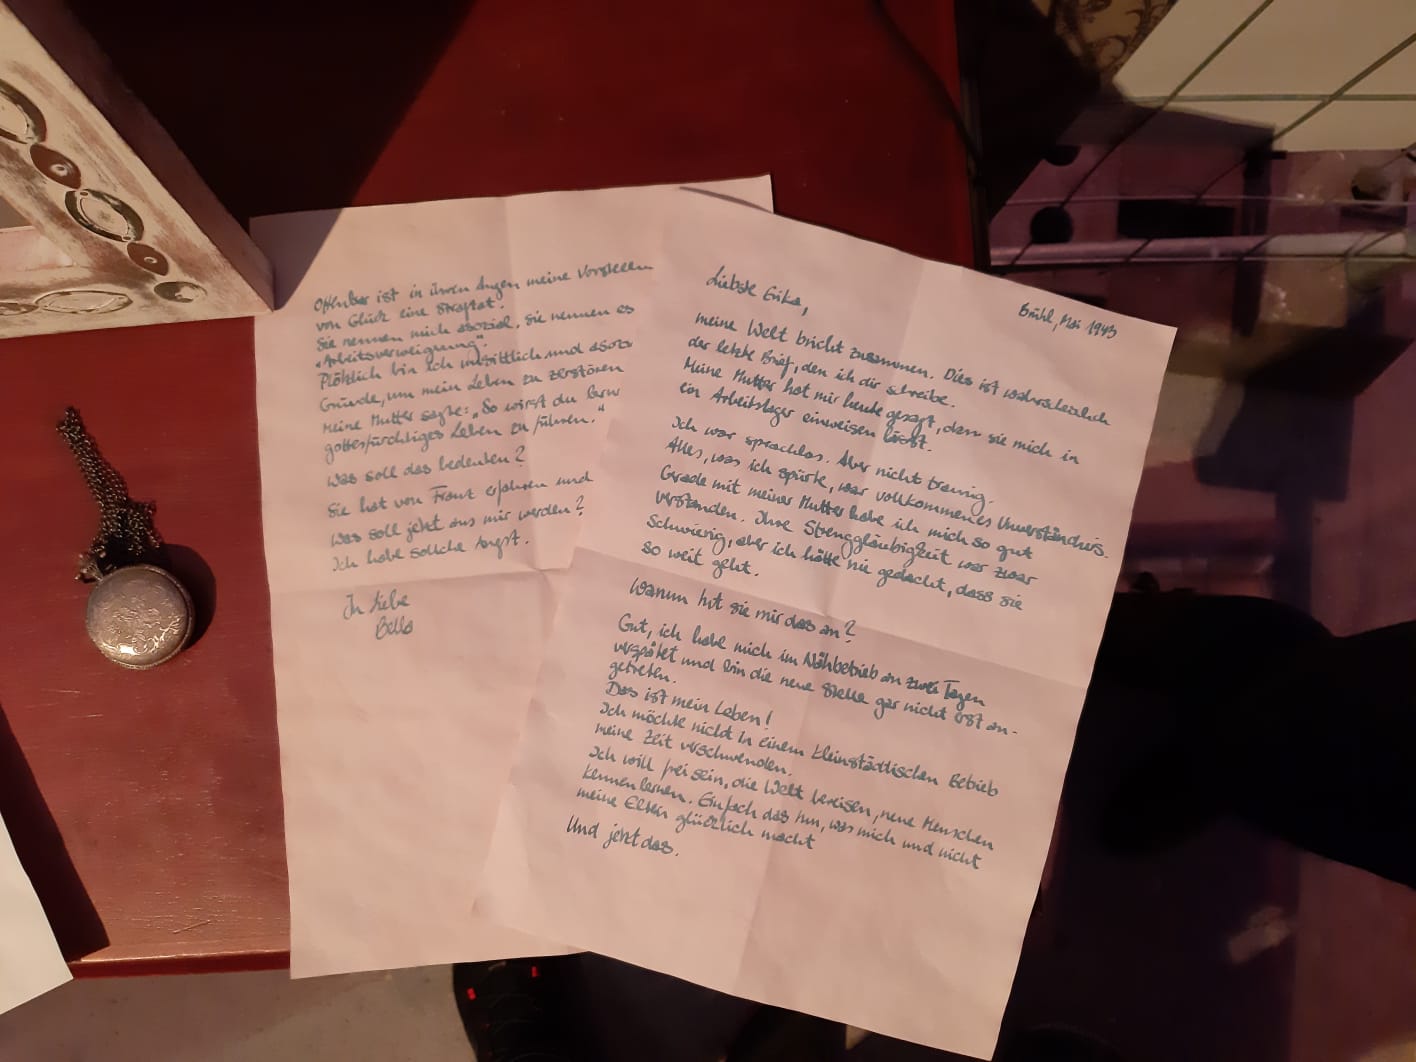 Brühl, Mai 1943
Liebste Erika,
meine Welt bricht zusammen. Dies ist wahrscheinlich
der letzte Brief, den ich dir schreibe.
Meine Mutter hat mir heute gesagt, dass sie mich in
ein Arbeitslager einweisen lässt.
Ich war sprachlos. Aber nicht traurig.
Alles, was ich spürte, war vollkommenes Unverständnis.
Gerade mit meiner Mutter habe ich mich so gut
verstanden. Ihre Strenggläubigkeit war zwar
schwierig, aber ich hätte nie gedacht, dass sie
so weit geht.
Warum tut sie mir das an?
Gut, ich habe mich im Nähbetrieb an zwei Tagen
verspätet und bin die neue Stelle gar nicht erst an-
getreten.
Das ist mein Leben!
Ich möchte nicht in einem kleinstädtischen Betrieb
meine Zeit verschwenden.
Ich will frei sein, die Welt bereisen, neue Menschen
kennenlernen. Einfach das tun, was mich und nicht
meine Eltern glücklich macht
Und jetzt das.
Offenbar ist in ihren Augen meine
von Glück eine Straftat.
Sie nennen mich asozial, sie nennen es
"Arbeitsverweigerung".
Plötzlich bin ich unsittlich und
Gründe, um mein Leben zu zerstören
Meine Mutter sagte: „So wirst du
gottesfürchtiges Leben zu führen."
Was soll das bedeuten?
Sie hat von Franz erfahren und
Was soll jetzt aus mir werden?
Ich habe solche Angst.
In Liebe
Bella